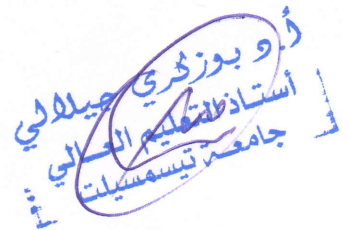 أ. د بوزكري جيلالي
أستاذ التعليم العالي
جامعة تيسمسيلت